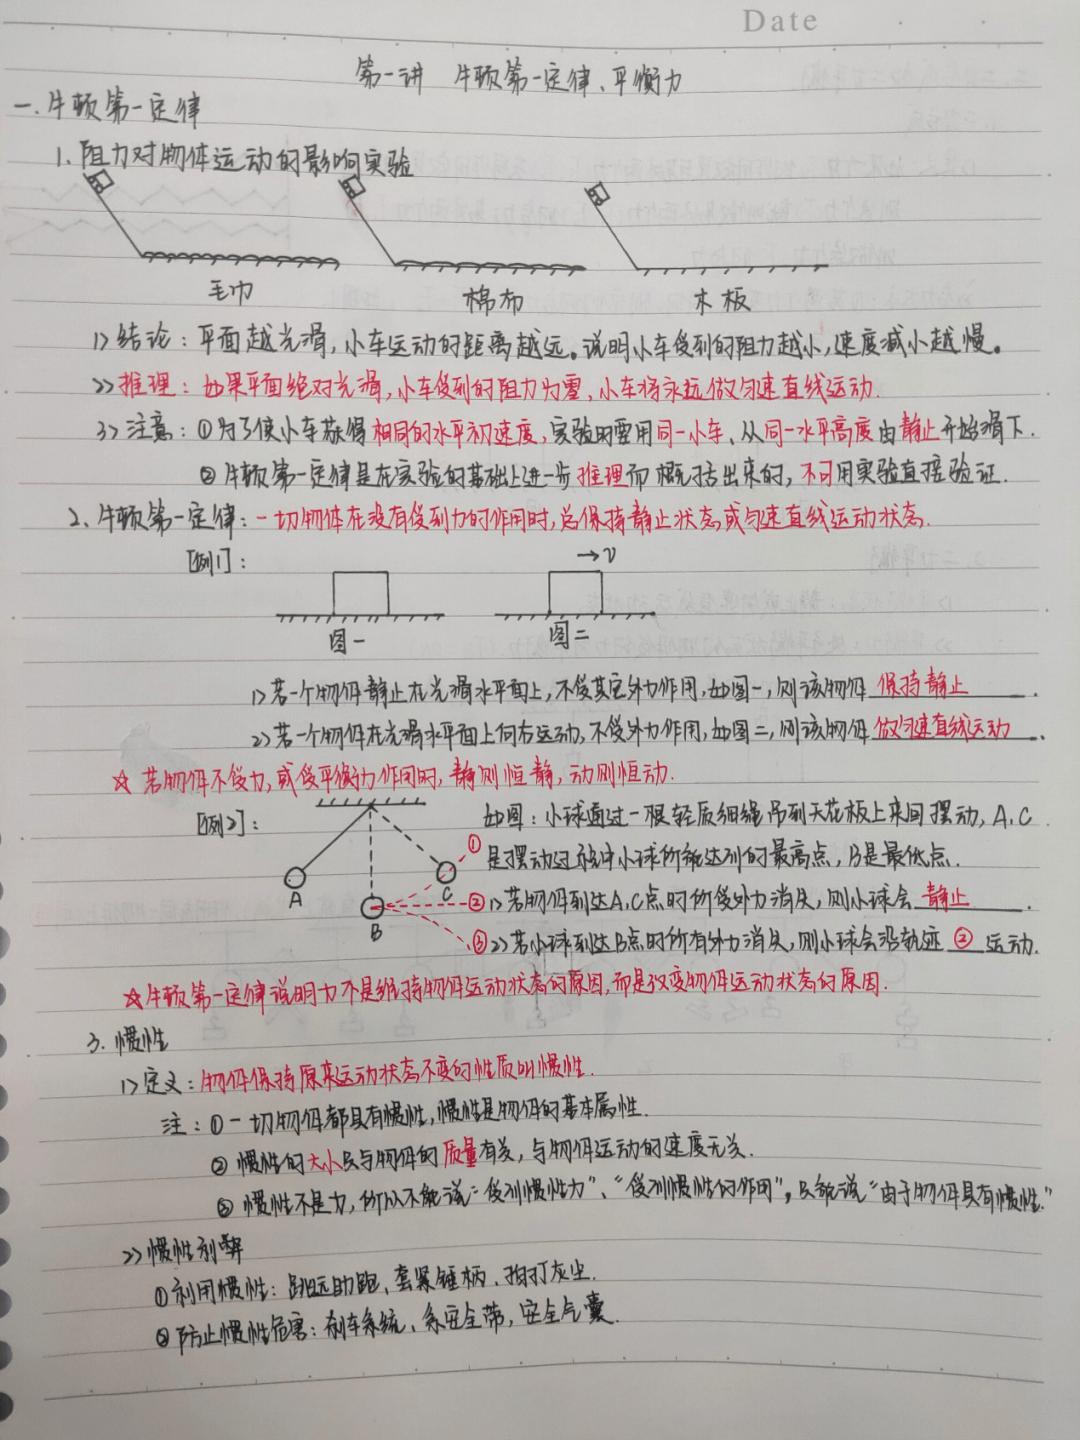 Date
第一讲 牛顿第一定律、平衡力
一.牛顿第一定律
1.阻力对物体运动的影响实验
毛巾 棉布 木板
1>结论：平面越光滑,小车运动的距离越远。说明小车受到的阻力越小,速度减小越慢。
2>推理：如果平面绝对光滑,小车受到的阻力为零,小车将永远做匀速直线运动.
3>注意：①为了使小车获得相同的水平初速度,实验时要用同一小车、从同一水平高度由静止开始滑下.
②牛顿第一定律是在实验的基础上进一步推理而概括出来的,不可用实验直接验证.
2、牛顿第一定律：一切物体在没有受到力的作用时,总保持静止状态或匀速直线运动状态.
[例1]：
→v
图一 图二
1>若一个物体静止在光滑水平面上,不受其它外力作用,如图一,则该物体 保持静止 .
2>若一个物体在光滑水平面上向右运动,不受外力作用,如图二,则该物体 做匀速直线运动 .
☆ 若物体不受力,或受平衡力作用时,静则恒静,动则恒动.
[例2]：
如图：小球通过一根轻质细绳吊到天花板上来回摆动,A、C
是摆动过程中小球所能达到的最高点,B是最低点.
1>若物体到达A、C点时所受外力消失,则小球会 静止 .
2>若小球到达B点时所有外力消失,则小球会沿轨迹 ② 运动.
A B C ① ② ③
☆牛顿第一定律说明力不是维持物体运动状态的原因,而是改变物体运动状态的原因.
3.惯性
1>定义：物体保持原来运动状态不变的性质叫惯性.
注：①一切物体都具有惯性,惯性是物体的基本属性.
②惯性的大小只与物体的质量有关,与物体运动的速度无关.
③惯性不是力,所以不能说“受到惯性力”、“受到惯性的作用”,只能说“由于物体具有惯性.”
2>惯性利弊
①利用惯性：跳远助跑、套紧锤柄、拍打灰尘.
②防止惯性危害：刹车系统、系安全带,安全气囊.